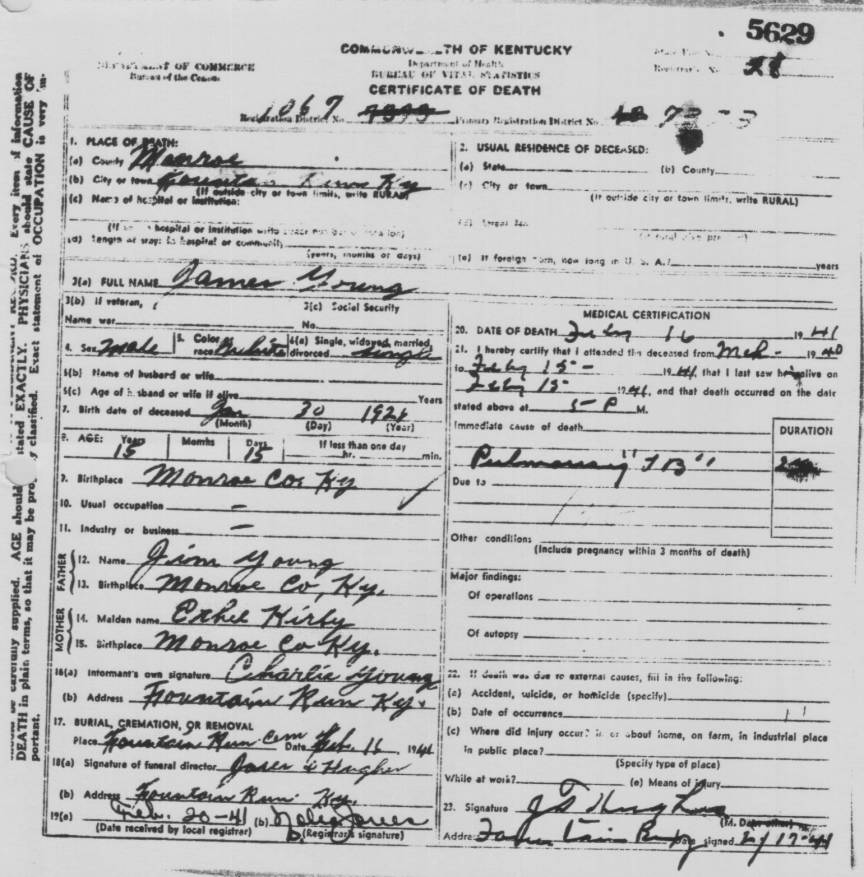 5629
COMMONWEALTH OF KENTUCKY
DEPARTMENT OF COMMERCE
Bureau of the Census
Department of Health
BUREAU OF VITAL STATISTICS
CERTIFICATE OF DEATH
Registrar's No. 28
Registration District No. 1067
Primary Registration District No.
1. PLACE OF DEATH:
(a) County Monroe
(b) City or town Fountain Run Ky
(If outside city or town limits, write RURAL)
(c) Name of hospital or institution:
(d) Length of stay: in hospital or community
(years, months or days)
2. USUAL RESIDENCE OF DECEASED:
(a) State (b) County
(c) City or town
(If outside city or town limits, write RURAL)
(e) If foreign born, how long in U. S. A.? years
3(a) FULL NAME James Young
3(b) If veteran, 3(c) Social Security
Name war No.
4. Sex Male 5. Color race White 6(a) Single, widowed, married, divorced single
6(b) Name of husband or wife
6(c) Age of husband or wife if alive Years
7. Birth date of deceased Jan 30
(Month) (Day) (Year)
8. AGE: Years Months Days If less than one day
15 15 hr. min.
9. Birthplace Monroe Co. Ky
10. Usual occupation –
11. Industry or business –
FATHER
12. Name Jim Young
13. Birthplace Monroe Co, Ky.
MOTHER
14. Maiden name Ethel Kirby
15. Birthplace Monroe Co Ky.
16(a) Informant's own signature Charlie Young
(b) Address Fountain Run Ky.
17. BURIAL, CREMATION, OR REMOVAL
Place Fountain Run Cem Date Feb. 16 1941
18(a) Signature of funeral director
(b) Address Fountain Run Ky.
19(a) Feb. 20-41 (b)
(Date received by local registrar) (Registrar's signature)
MEDICAL CERTIFICATION
20. DATE OF DEATH Feby 16 1941
21. I hereby certify that I attended the deceased from Mch - 1940
to Feby 15 - 1941, that I last saw h alive on
Feby 15 1941, and that death occurred on the date
stated above at 5 P M.
Immediate cause of death DURATION
Pulmonary "TB"
Due to
Other conditions
(Include pregnancy within 3 months of death)
Major findings:
Of operations
Of autopsy
22. If death was due to external causes, fill in the following:
(a) Accident, suicide, or homicide (specify)
(b) Date of occurrence
(c) Where did injury occur? in or about home, on farm, in industrial place
in public place?
(Specify type of place)
While at work? (e) Means of injury
23. Signature
Address Fountain Run Ky Date signed 2/17-41
stated EXACTLY. PHYSICIANS should state CAUSE OF
DEATH in plain terms, so that it may be properly classified. Exact statement of OCCUPATION is very important.